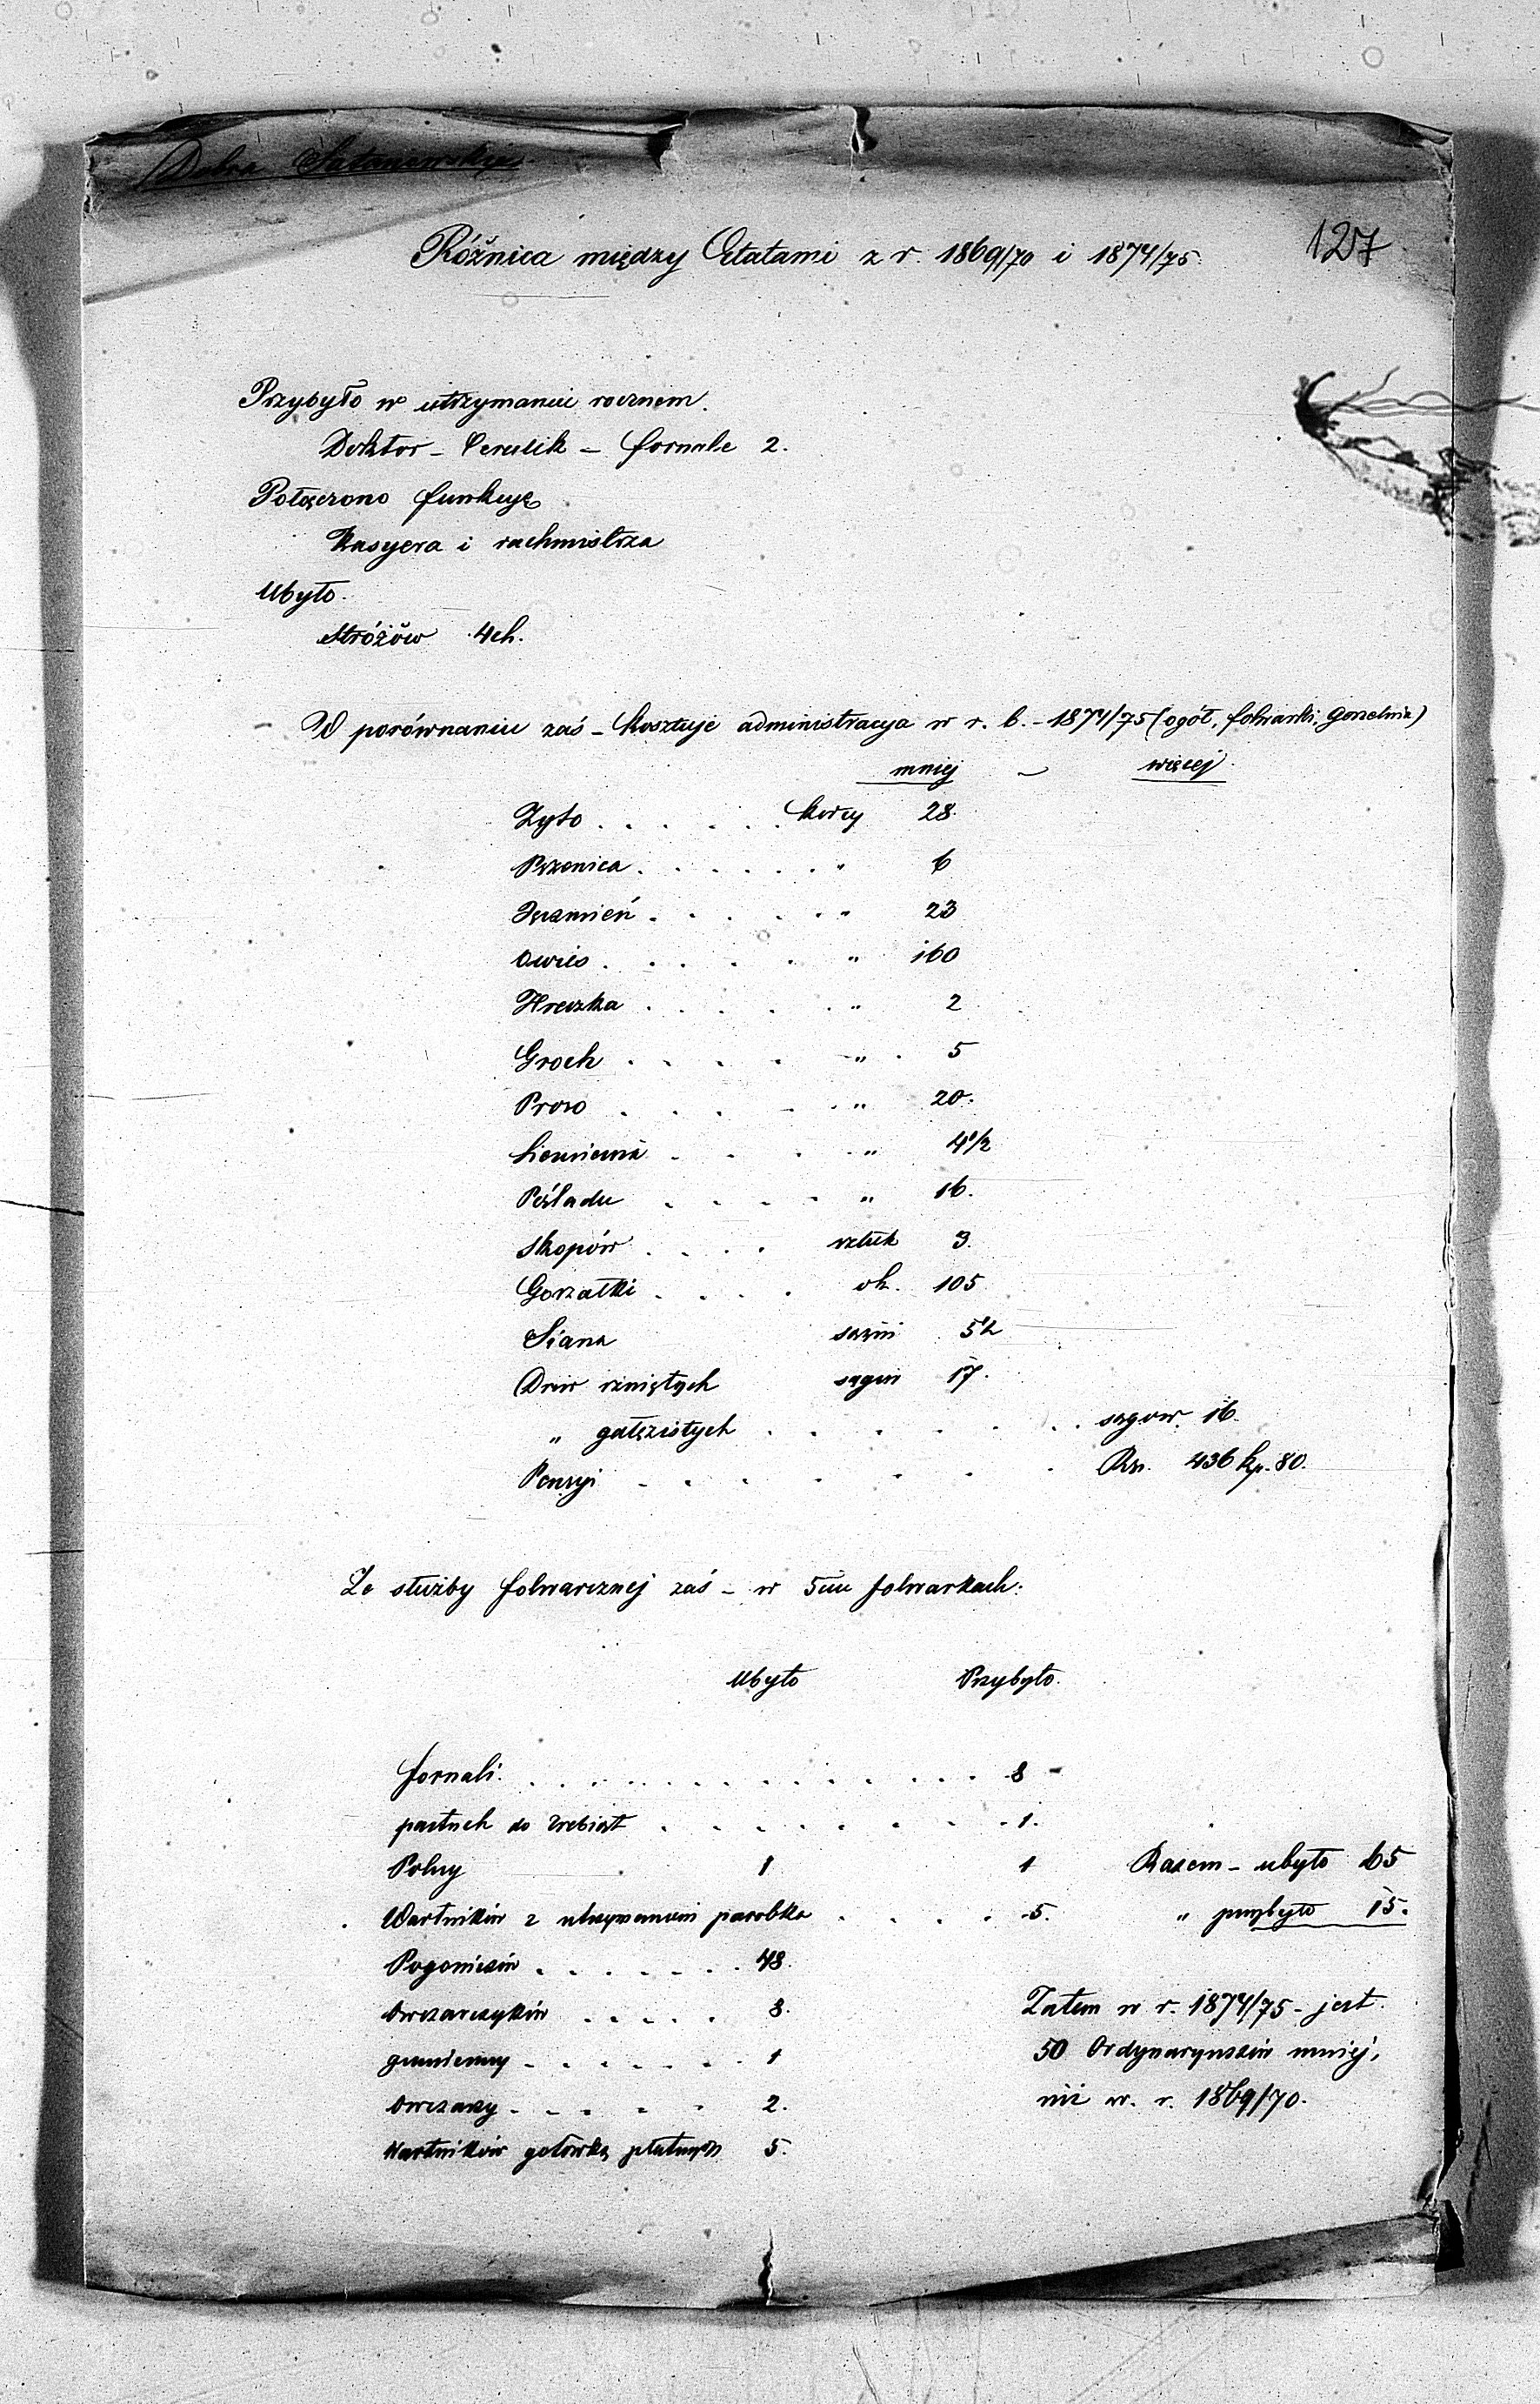 Dobra Satanowskie.
127
Różnica między Etatami z r. 1869/70 i 1874/75.
Przybyło w utrzymaniu rocznem.
Doktor – Cerulik – fornale 2.
Połączono funkcyę
Kasyera i rachmistrza
Ubyło.
Stróżów 4ch.
W porównaniu zaś – kosztuje administracya w r. b. – 1874/75 (ogół, folwarki, gorzelnia)
mniej – więcej.
Żyto . . . . . . korcy 28.
Pszenica . . . . . . " 6
Jęczmień . . . . . " 23
Owies . . . . . " 160
Hreczka . . . . . " 2
Groch . . . . " . 5
Proso . . . . . " 20.
Siemienia . . . . " 4 1/2
Pośladu . . . . . " 16.
Skopów . . . . sztuk 3.
Gorzałki . . . . ok. 105
Siana sążni 5 1/2
Drew rzniętych sągów 17.
" gałęzistych . . . . . . . sągów. 16.
Pensyi . . . . . . . Rs. 436 kp. 80.
Ze służby folwarcznej zaś – w 5ciu folwarkach:
Ubyło Przybyło.
fornali . . . . . . . . . . . . . . . 8 -
pastuch do źrebiąt . . . . . . . . . 1.
Polny 1 1 Razem – ubyło 65
Wartników z utrzymaniem parobka . . . . 5. " przybyło 15.
Pogoniczów . . . . . . . 48.
Owczarczyków . . . . . 8. Zatem w r. 1874/75 – jest
gumienny . . . . . . 1 50 Ordynaryuszów mniej,
Owczarzy . . . . . 2. niż w. r. 1869/70.
Wartników gotówką płatnych 5.